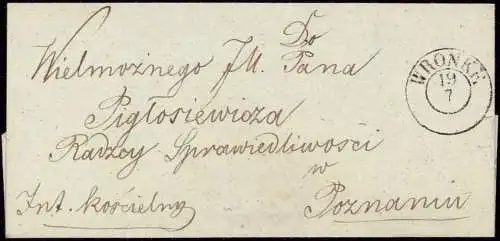 Do
Wielmożnego JM. Pana
Pigłosiewicza
Radzcy Sprawiedliwości
w
Poznaniu
Int. kościelny
WRONKE
19
7